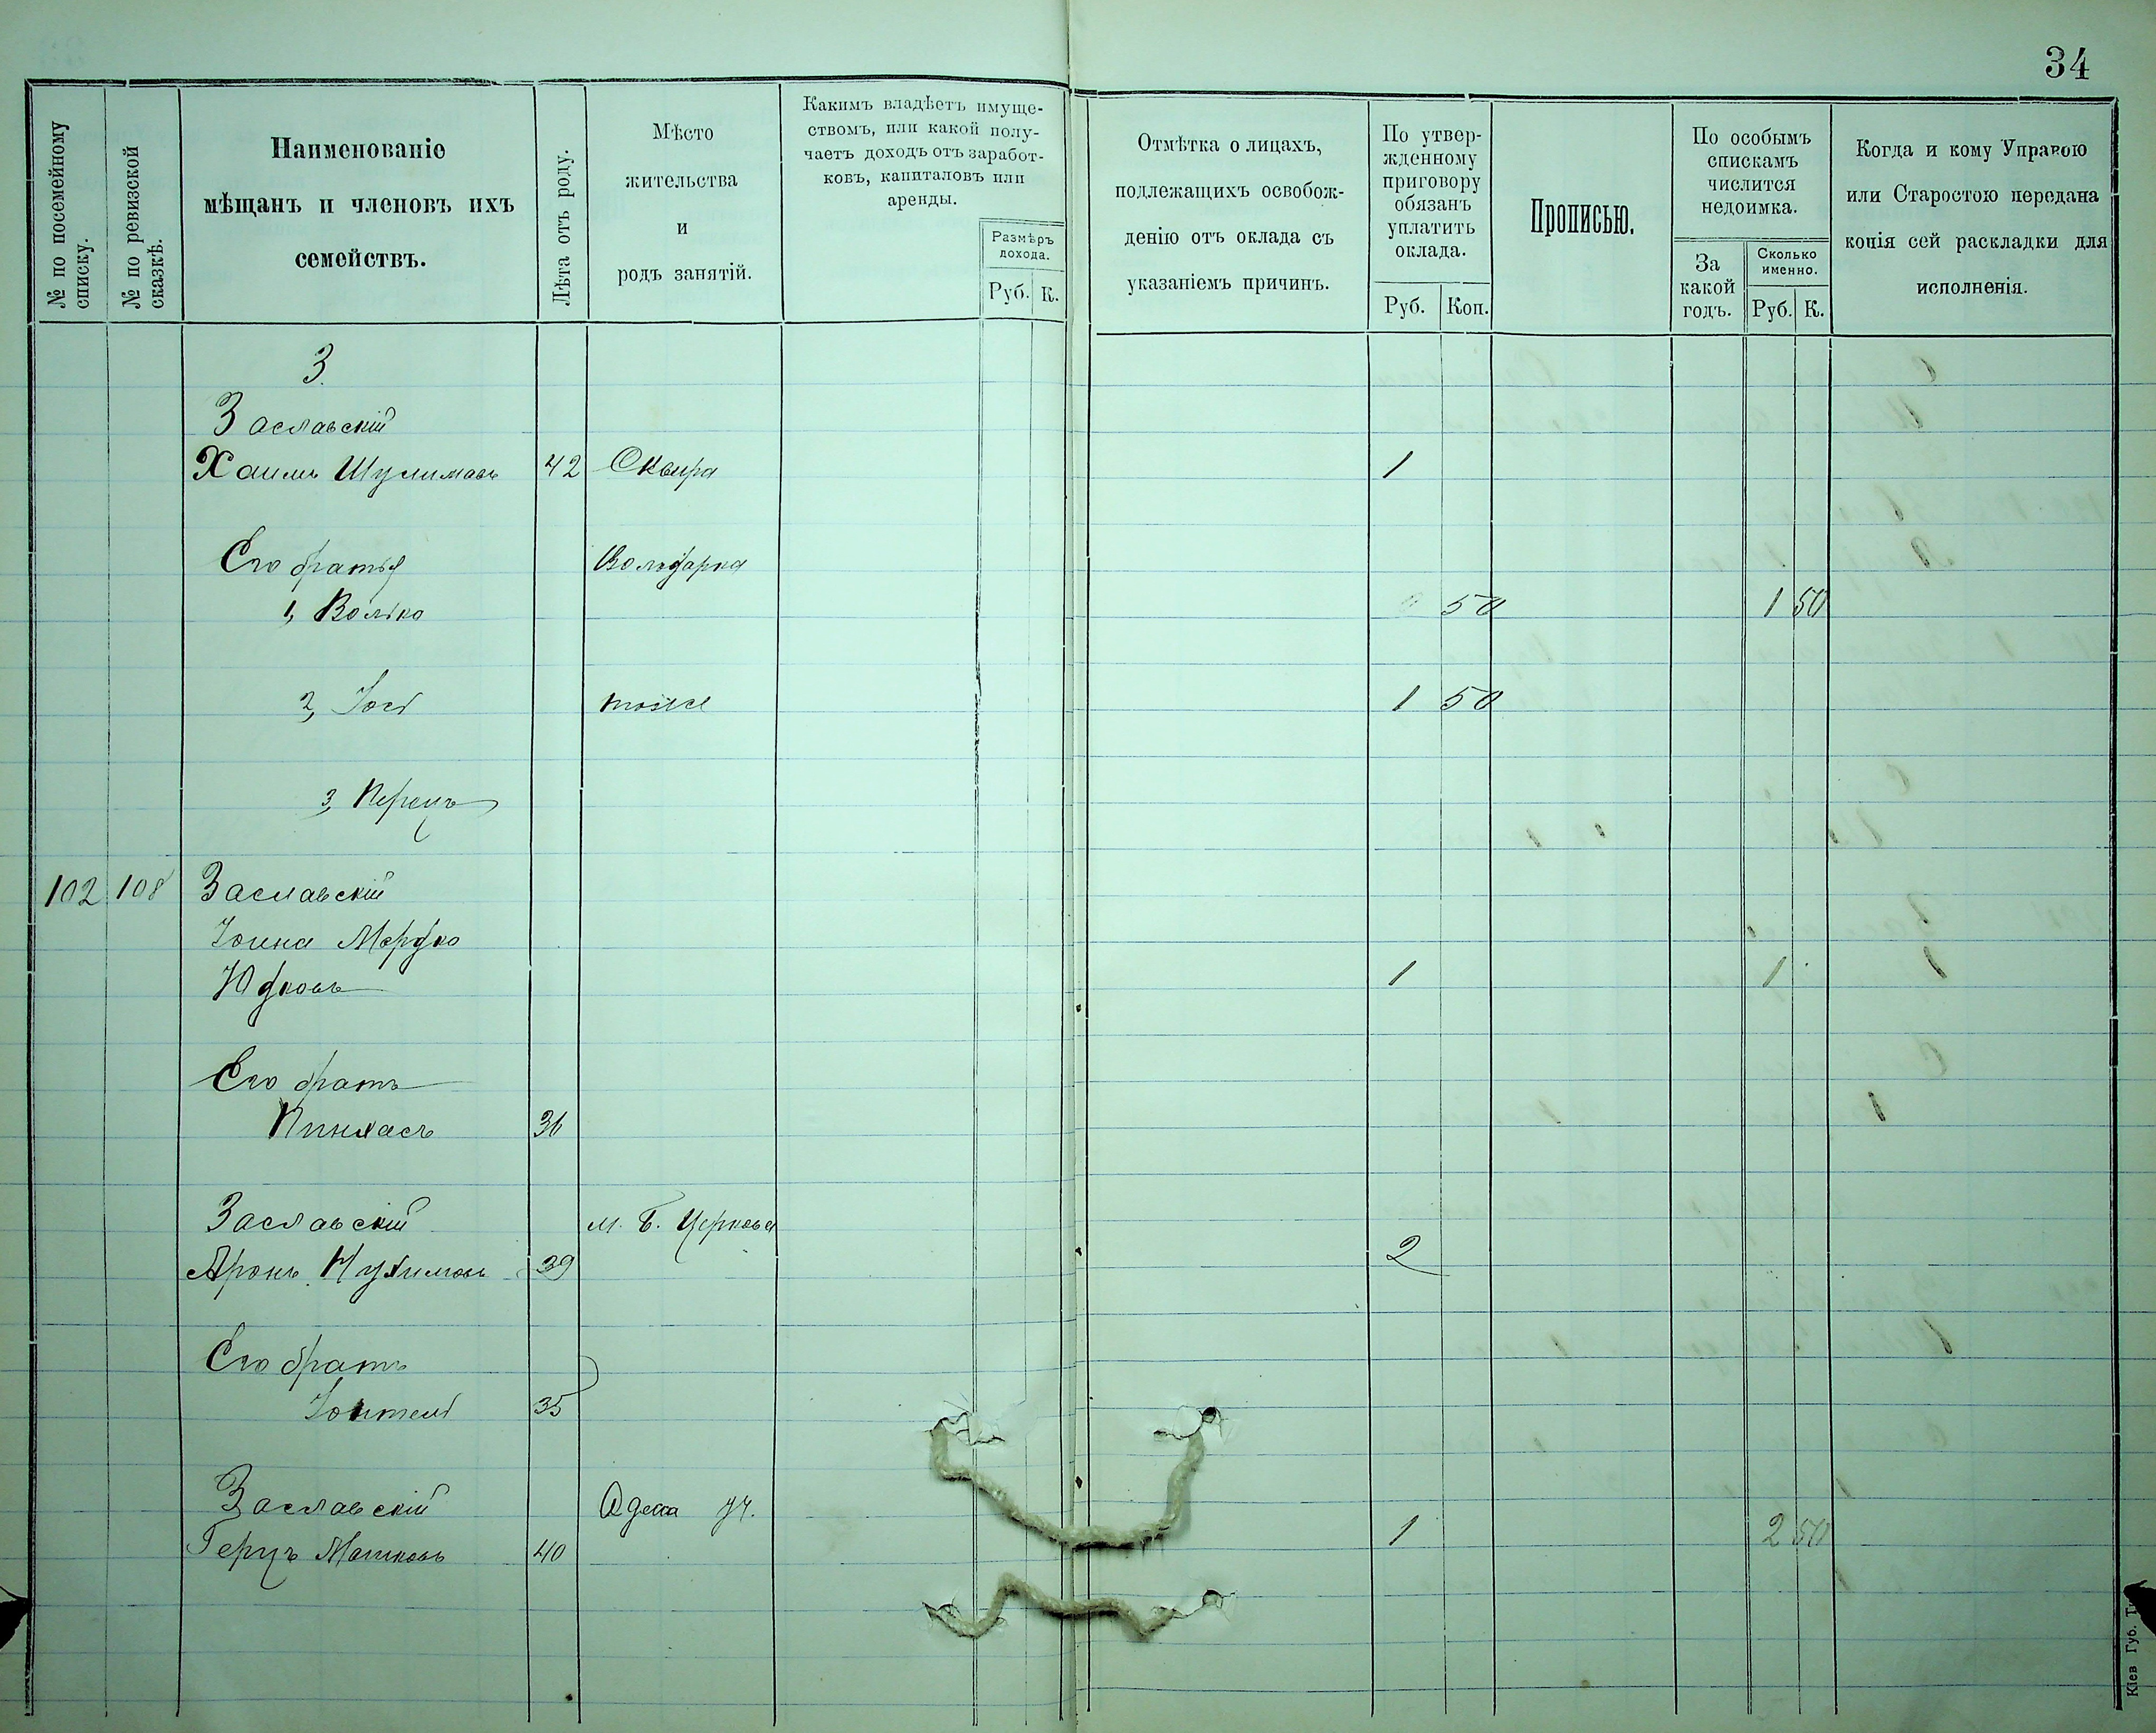 34
№ по посемейному списку.
№ по ревизской сказкѣ.
Наименованіе
мѣщанъ и членовъ ихъ
семействъ.
Лѣта отъ роду.
Мѣсто
жительства
и
родъ занятій.
Какимъ владѣетъ имуще-
ствомъ, или какой полу-
чаетъ доходъ отъ заработ-
ковъ, капиталовъ или
аренды.
Размѣръ
дохода.
Руб. К.
Отмѣтка о лицахъ,
подлежащихъ освобож-
денію отъ оклада съ
указаніемъ причинъ.
По утвер-
жденному
приговору
обязанъ
уплатить
оклада.
Руб. Коп.
Прописью.
По особымъ
спискамъ
числится
недоимка.
За
какой
годъ.
Сколько
именно.
Руб. К.
Когда и кому Управою
или Старостою передана
копія сей раскладки для
исполненія.
З
Заславскій
Хаимъ Шулимовъ 42 Сквира 1
Его братья Володарка
1, Волько 50 1 50
2, Іось тоже 1 50
3, Перецъ
102 108 Заславскій
Іойна Мордко
Юдковъ 1 1
Его братъ
Пинхасъ 36
Заславскій м. Б. Церковь
Аронъ Нухимовъ 39 2
Его братъ
35
Заславскій Одесса
Герцъ Мошковъ 40 1 2 50
Кіев Губ. Т